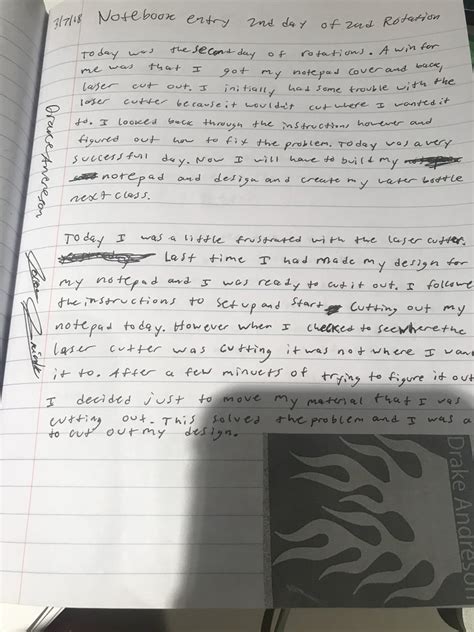 3/7/18 Notebook entry 2nd day of 2nd Rotation
Today was the second day of rotations. A win for
me was that I got my notepad cover and back,
laser cut out. I initially had some trouble with the
laser cutter because it wouldn't cut where I wanted it
to. I looked back through the instructions however and
figured out how to fix the problem. Today was a very
successfull day. Now I will have to build my
notepad and design and create my water bottle
next class.
Drake Andreson
Today I was a little frustrated with the laser cutter.
Last time I had made my design for
my notepad and I was ready to cut it out. I followe
the instructions to set up and start cutting out my
notepad today. However when I checked to see where the
laser cutter was cutting it was not where I wan
it to. After a few minuets of trying to figure it out
I decided just to move my material that I was
cutting out. This solved the problem and I was a
to cut out my design.
Drake Andreson